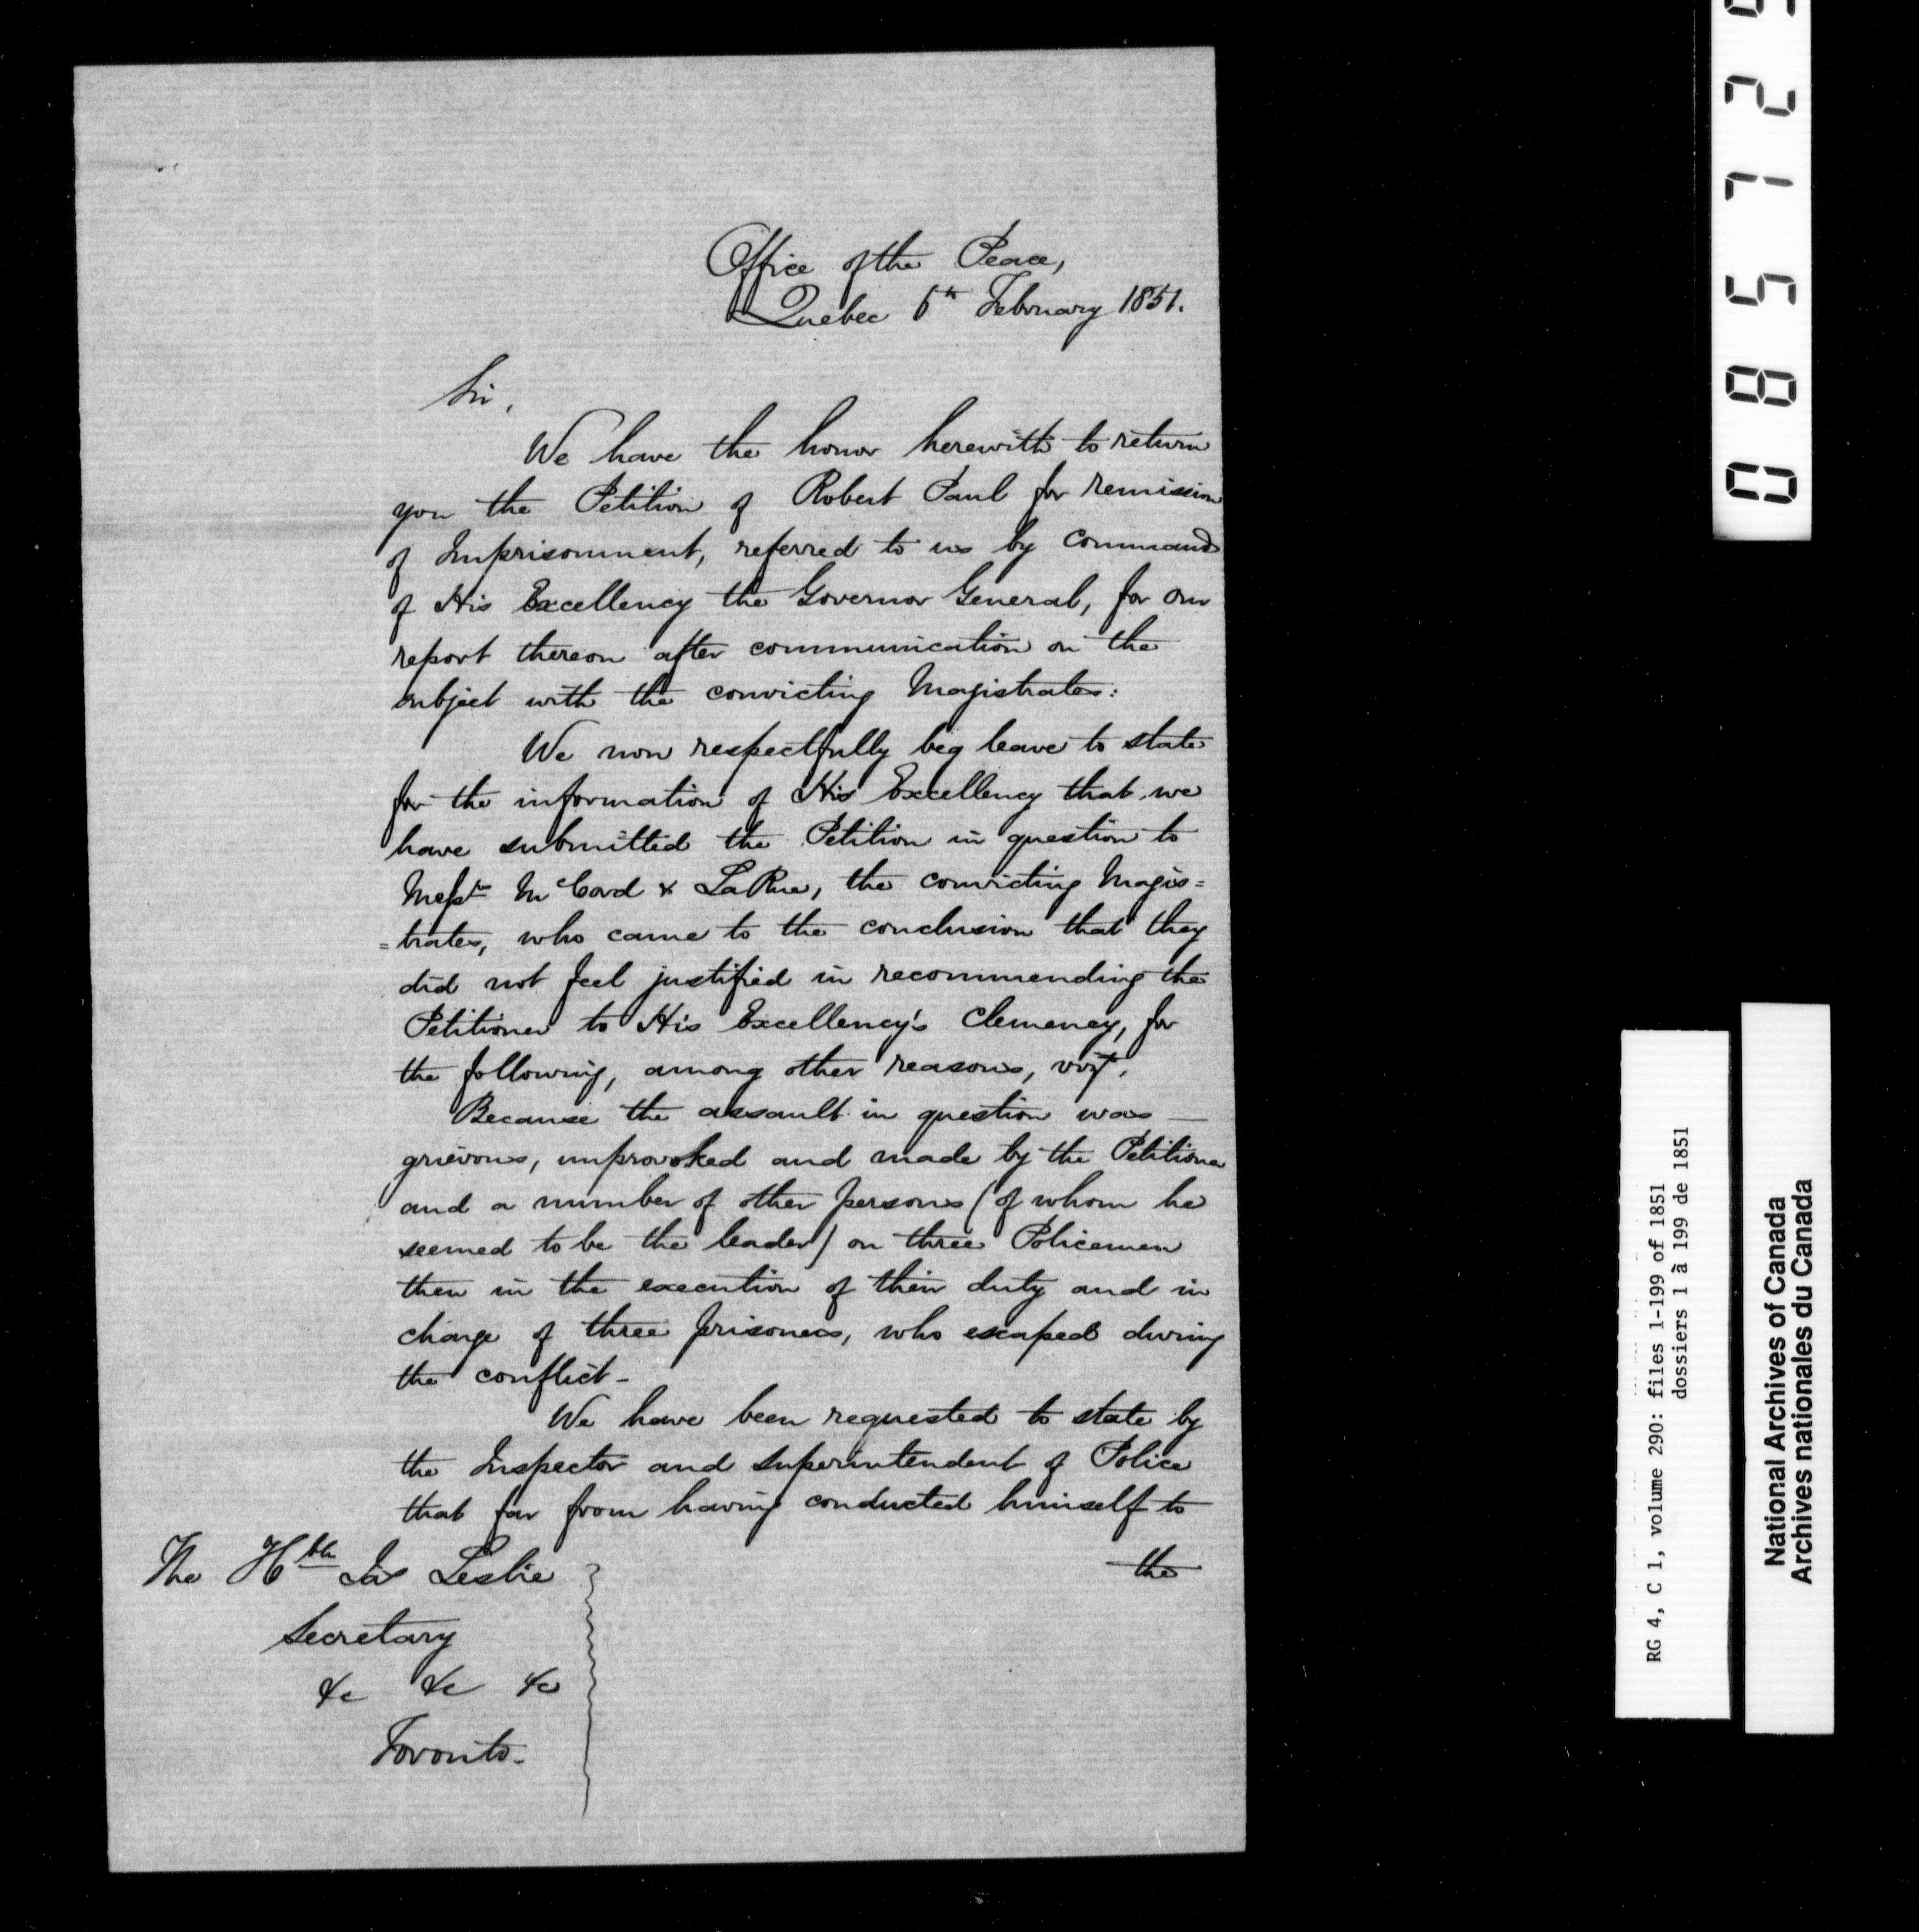 Office of the Peace,
Quebec 6th February 1851.
Sir,
We have the honor herewith to return
you the Petition of Robert Paul for remission
of Imprisonment, referred to us by command
of His Excellency the Governor General, for our
report thereon after communication on the
subject with the convicting Magistrates:
We now respectfully beg leave to state
for the information of His Excellency that we
have submitted the Petition in question to
Messrs McCord & LaRue, the convicting Magis=
=trates, who came to the conclusion that they
did not feel justified in recommending the
Petitioner to His Excellency's Clemency, for
the following, among other reasons, vizt.
Because the assault in question was —
grievous, unprovoked and made by the Petitioner
and a number of other persons (of whom he
seemed to be the leader) on three Policemen
then in the execution of their duty and in
charge of three prisoners, who escaped during
the conflict -
We have been requested to state by
the Inspector and Superintendent of Police
that far from having conducted himself to
the
The Hble Jas Leslie
Secretary
&c &c &c
Toronto -
0 8 5 1 2
RG 4, C 1, volume 290: files 1-199 of 1851
dossiers 1 à 199 de 1851
National Archives of Canada
Archives nationales du Canada